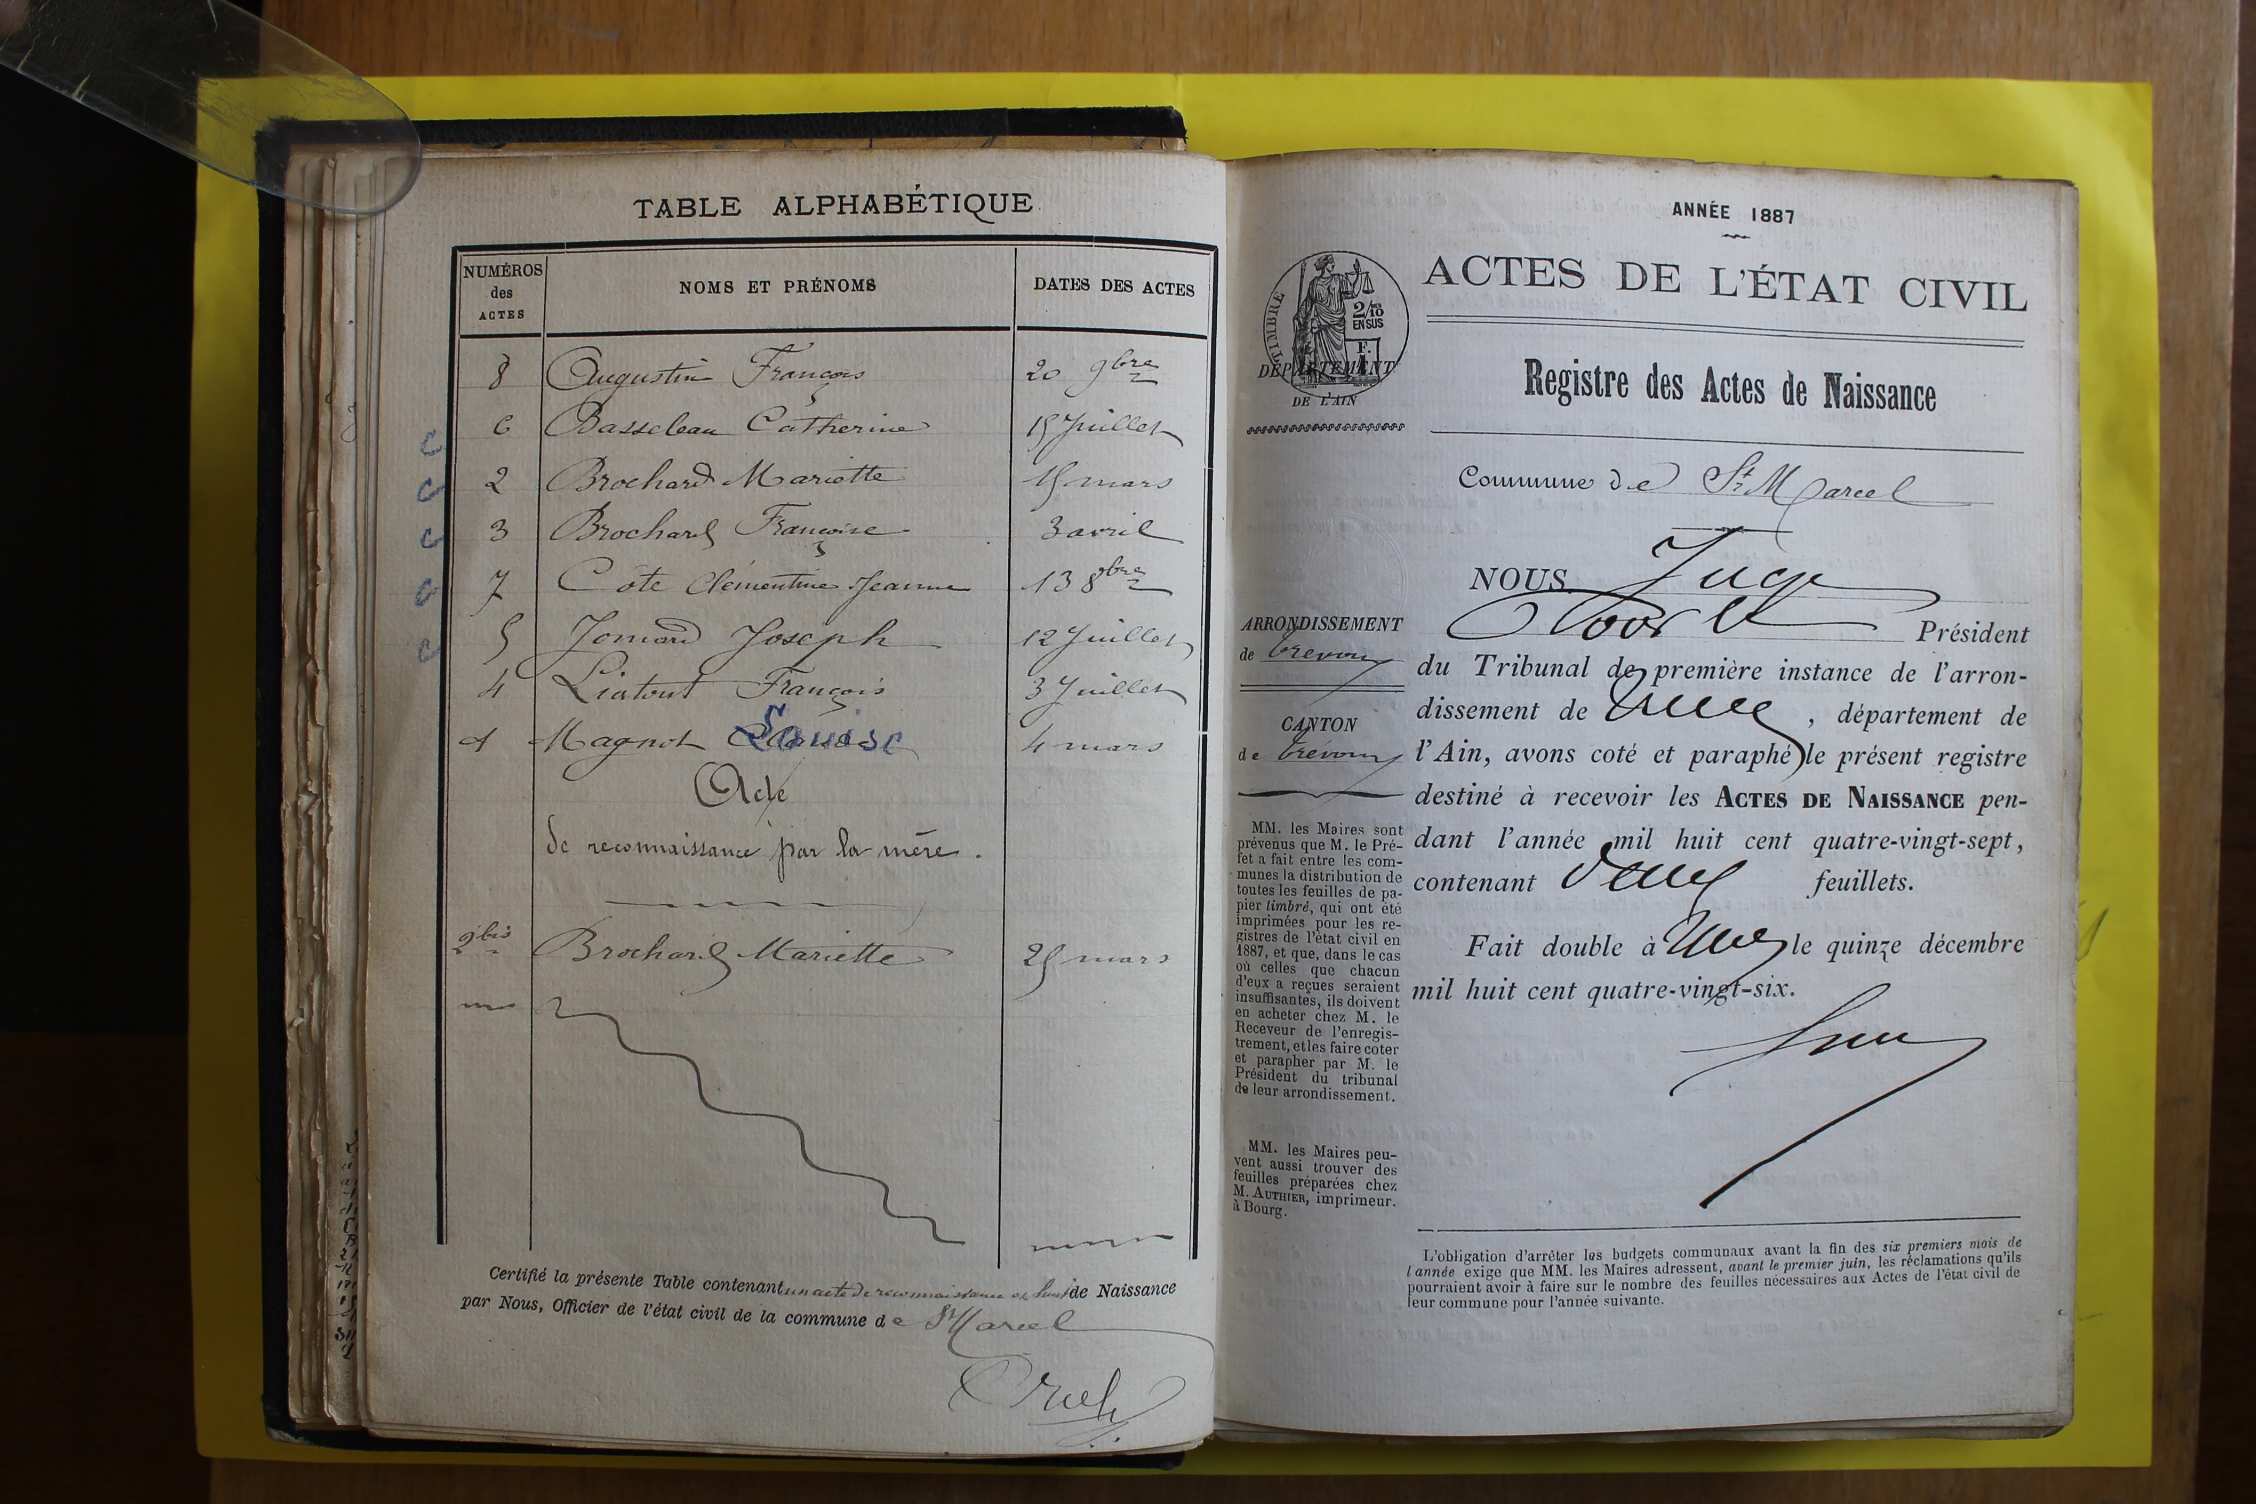 TABLE ALPHABÉTIQUE
NUMÉROS
des
ACTES
NOMS ET PRÉNOMS
DATES DES ACTES
8 Augustin François 20 9bre
6 Catherine 15 Juillet
2 Brochard Mariette 15 mars
3 Brochard Françoise 3 avril
7 Côte Clémentine Jeanne 13 8bre
5 Jomard Joseph 12 Juillet
4 Liatout François 3 Juillet
1 Magnot Louise 4 mars
Acte
de reconnaissance par la mère.
2 bis Brochard Mariette 25 mars
Certifié la présente Table contenant un acte de reconnaissance et huit de Naissance
par Nous, Officier de l'état civil de la commune de St Marcel
ANNÉE 1887
TIMBRE
2/10
EN SUS
F.
DÉPARTEMENT
DE L'AIN
ACTES DE L'ÉTAT CIVIL
Registre des Actes de Naissance
Commune de St Marcel
NOUS Juge
Président
ARRONDISSEMENT
de Trévoux
CANTON
de Trévoux
du Tribunal de première instance de l'arron-
dissement de , département de
l'Ain, avons coté et paraphé le présent registre
destiné à recevoir les ACTES DE NAISSANCE pen-
dant l'année mil huit cent quatre-vingt-sept,
contenant feuillets.
Fait double à le quinze décembre
mil huit cent quatre-vingt-six.
MM. les Maires sont
prévenus que M. le Pré-
fet a fait entre les com-
munes la distribution de
toutes les feuilles de pa-
pier timbré, qui ont été
imprimées pour les re-
gistres de l'état civil en
1887, et que, dans le cas
où celles que chacun
d'eux a reçues seraient
insuffisantes, ils doivent
en acheter chez M. le
Receveur de l'enregis-
trement, et les faire coter
et parapher par M. le
Président du tribunal
de leur arrondissement.
MM. les Maires peu-
vent aussi trouver des
feuilles préparées chez
M. AUTHIER, imprimeur.
à Bourg.
L'obligation d'arrêter les budgets communaux avant la fin des six premiers mois de
l'année exige que MM. les Maires adressent, avant le premier juin, les réclamations qu'ils
pourraient avoir à faire sur le nombre des feuilles nécessaires aux Actes de l'état civil de
leur commune pour l'année suivante.